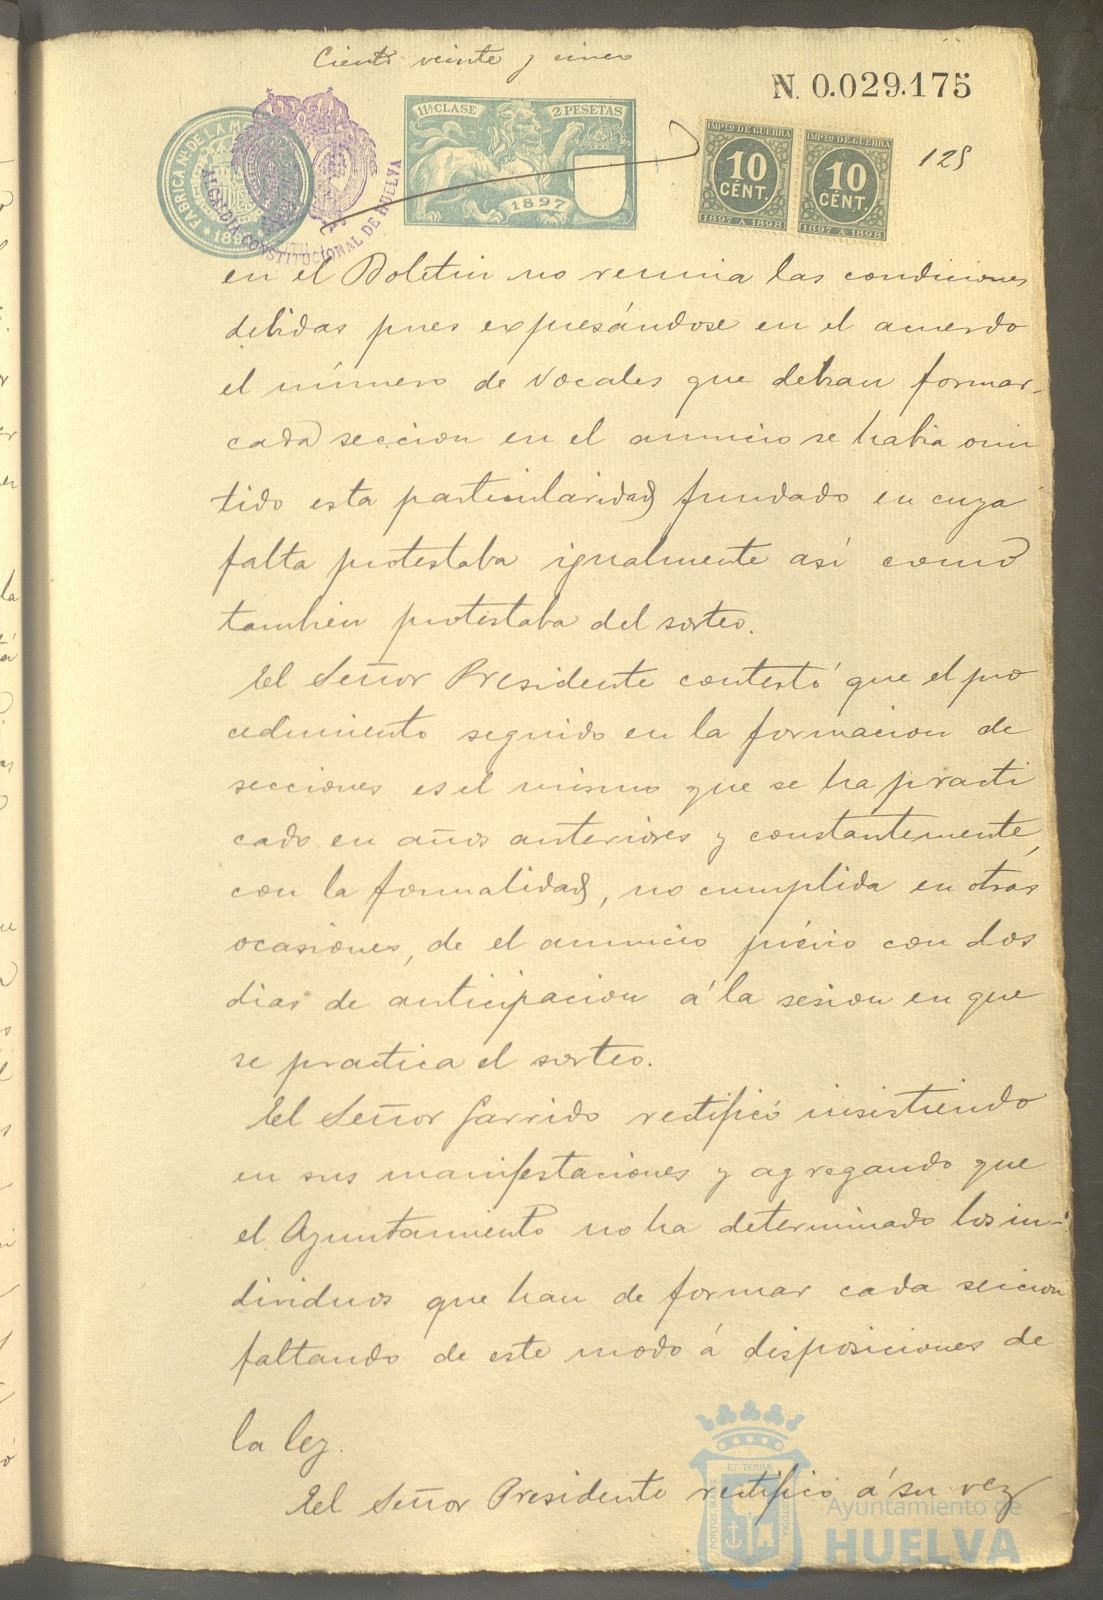 Ciento veinte y cinco
N. 0.029.175
11ª CLASE 2 PESETAS
1897
IMPTO DE GUERRA
10
CÉNT.
1897 A 1898
IMPTO DE GUERRA
10
CÉNT.
1897 A 1898
125
ALCALDIA CONSTITUCIONAL DE HUELVA
en el Boletin no reunia las condiciones
debidas pues expresándose en el acuerdo
el número de vocales que debian formar
cada seccion en el anuncio se habia omi
tido esta particularidad fundado en cuya
falta protestaba igualmente así como
tambien protestaba del sorteo.
El Señor Presidente contestó que el pro
cedimiento seguido en la formacion de
secciones es el mismo que se ha practi
cado en años anteriores y constantemente,
con la formalidad, no cumplida en otras
ocasiones, de el anuncio prévio con dos
dias de anticipacion á la sesion en que
se practica el sorteo.
El Señor Garrido rectificó insistiendo
en sus manifestaciones y agregando que
el Ayuntamiento no ha determinado los in-
dividuos que han de formar cada seccion
faltando de este modo á disposiciones de
la ley.
El Señor Presidente rectificó á su vez
Ayuntamiento de
HUELVA